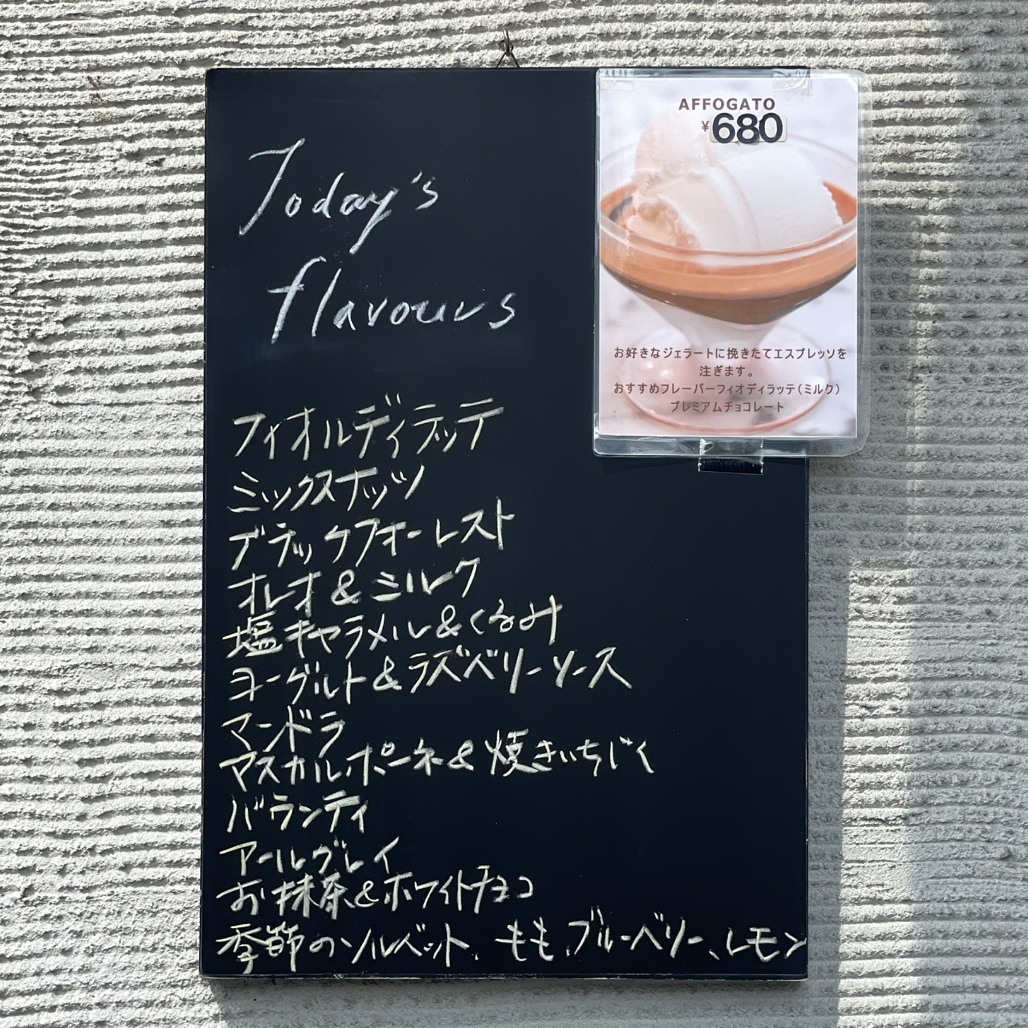 Today's
flavours
AFFOGATO
¥680
お好きなジェラートに挽きたてエスプレッソを
注ぎます。
おすすめフレーバーフィオディラッテ(ミルク)
プレミアムチョコレート
フィオルディラッテ
ミックスナッツ
ブラックフォーレスト
オレオ&ミルク
塩キャラメル&くるみ
ヨーグルト&ラズベリーソース
マンドラ
マスカルポーネ&焼きいちじく
バランティ
アールグレイ
お抹茶&ホワイトチョコ
季節のソルベット、もも、ブルーベリー、レモン